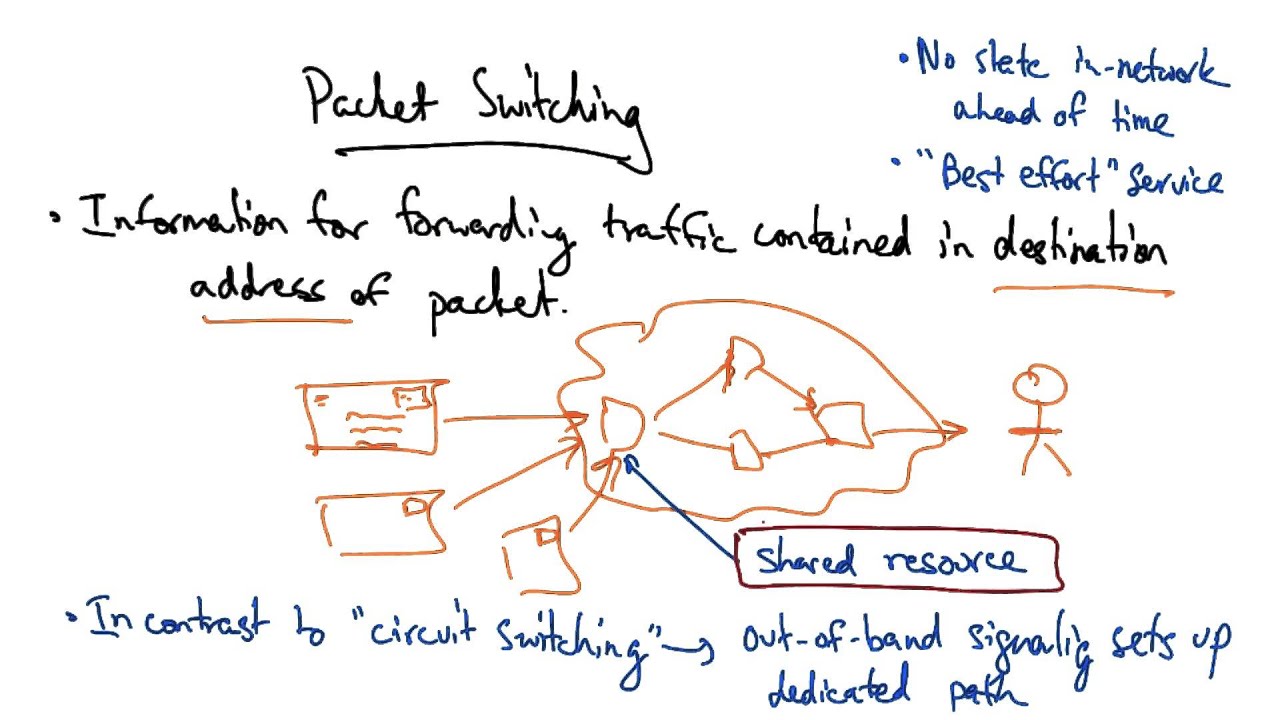 Packet Switching
• No state in-network
ahead of time
• "Best effort" Service
• Information for forwarding traffic contained in destination
address of packet.
shared resource
• In contrast to "circuit switching" → out-of-band signalig sets up
dedicated path